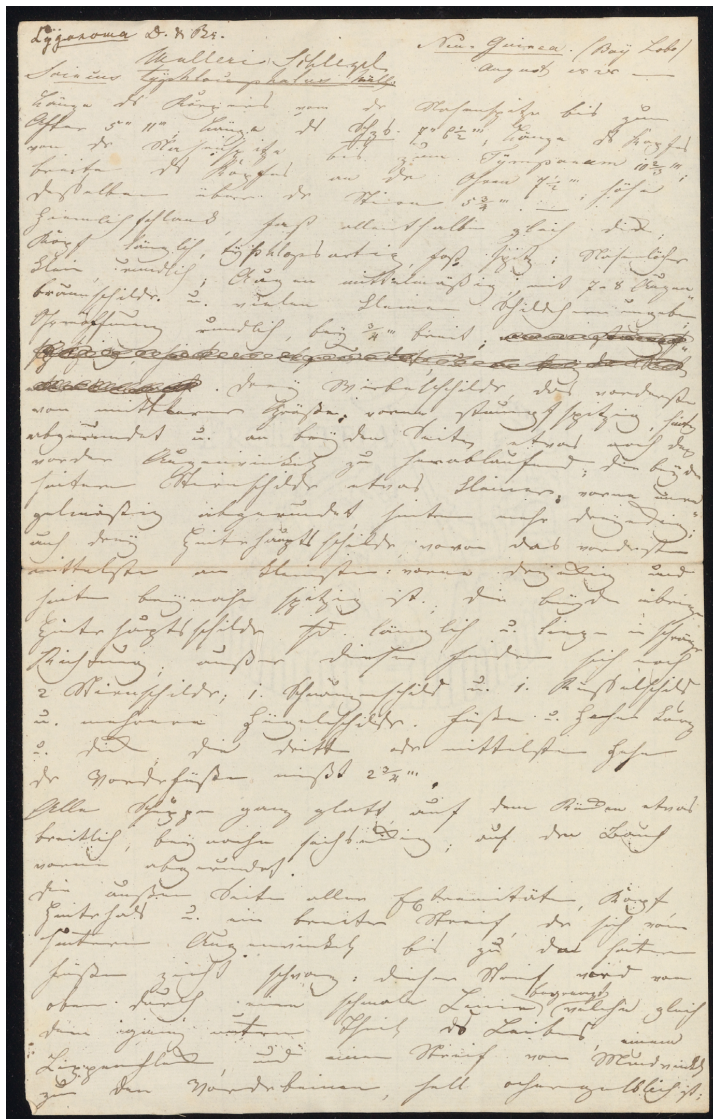 Lygosoma D. & Bs.
Neu-Guinea. (Bay Lobo)
Mulleri Schlegel
August 1828 —
Scincus Typhlocephalus Müll.
Länge des Körpers von der Nasenspitze bis zum
After 5" 11"', Länge des Schw. 7" 6½"', Länge des Kopfes
von der Nasenspitze bis zum Tympanum 10⅔"';
breite des Kopfes an den Ohren 7½"'; höhe
desselben über der Stirn 5¾"'.
Ziemlich schlank, fast allenthalben gleich dick;
Kopf länglich, typhlopsartig, fast spitz; Nasenlöcher
klein, rundlich; Augen mittelmäßig, mit 7–8 Augen-
braunschilde. u. vielen kleinen Schildchen umgeben;
Ohröffnung rundlich, bey ¾"' breit;
Drey Wirbelschilde das vorderste
von mittlerer Größe; vorne stumpf spitzig, hinten
abgerundet u. an beyden Seiten etwas nach den
vorder Augenwinkel zu herablaufend; die beyden
hintern Stirnschilde etwas kleiner, vorne unre-
gelmäßig abgerundet, hinten mehr dreyeckig;
auch drey Hinterhauptsschilde, wovon das vorderste
mittelste am kleinsten: vorne dreyeckig und
hinten beynahe spitzig ist; die beyden übrigen
Hinterhauptsschilde sd. länglich u. liegen in schräger
Richtung; außer diesen finden sich noch
2 Stirnschilde; 1. Schnauzenschild u. 1. Rüsselschild
u. mehrere Zügelschilde. Füße u. Zehen kurz
u. dick, die dritte oder mittelste Zehe
der Vorderfüße mißt 2¾"'.
Alle Schuppen ganz glatt, auf dem Rücken etwas
breitlich, beynahe sechseckig; auf den Bauch
vorne abgerundet.
Die äußere Seite aller Extremitäten, Kopf
Hinterhals u. ein breiter Streif, der sich vom
hintern Augenwinkel bis zu den hintern
Füßen zieht schwarz; dieser Streif wird von
oben durch eine schmale Linie begrenzt welche gleich
dem ganz untern Theil des Leibes, einem
Lippenfleck und einem Streif vom Mundwinkel
zu den Vorderbeinen, hell ochergelblich ist;